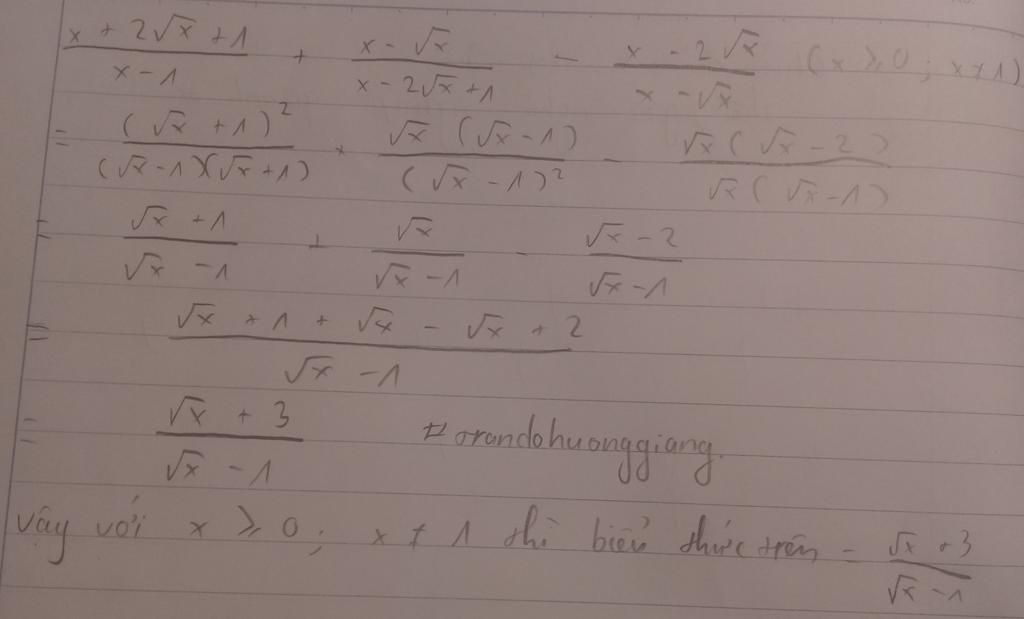 x + 2√x + 1 / x - 1 + x - √x / x - 2√x + 1 - x - 2√x / x - √x (x ≥ 0 ; x ≠ 1)
= (√x + 1)² / (√x - 1)(√x + 1) + √x (√x - 1) / (√x - 1)² - √x (√x - 2) / √x (√x - 1)
= √x + 1 / √x - 1 + √x / √x - 1 - √x - 2 / √x - 1
= √x + 1 + √x - √x + 2 / √x - 1
= √x + 3 / √x - 1 #orandohuonggiang.
Vậy với x ≥ 0 ; x ≠ 1 thì biểu thức trên = √x + 3 / √x - 1